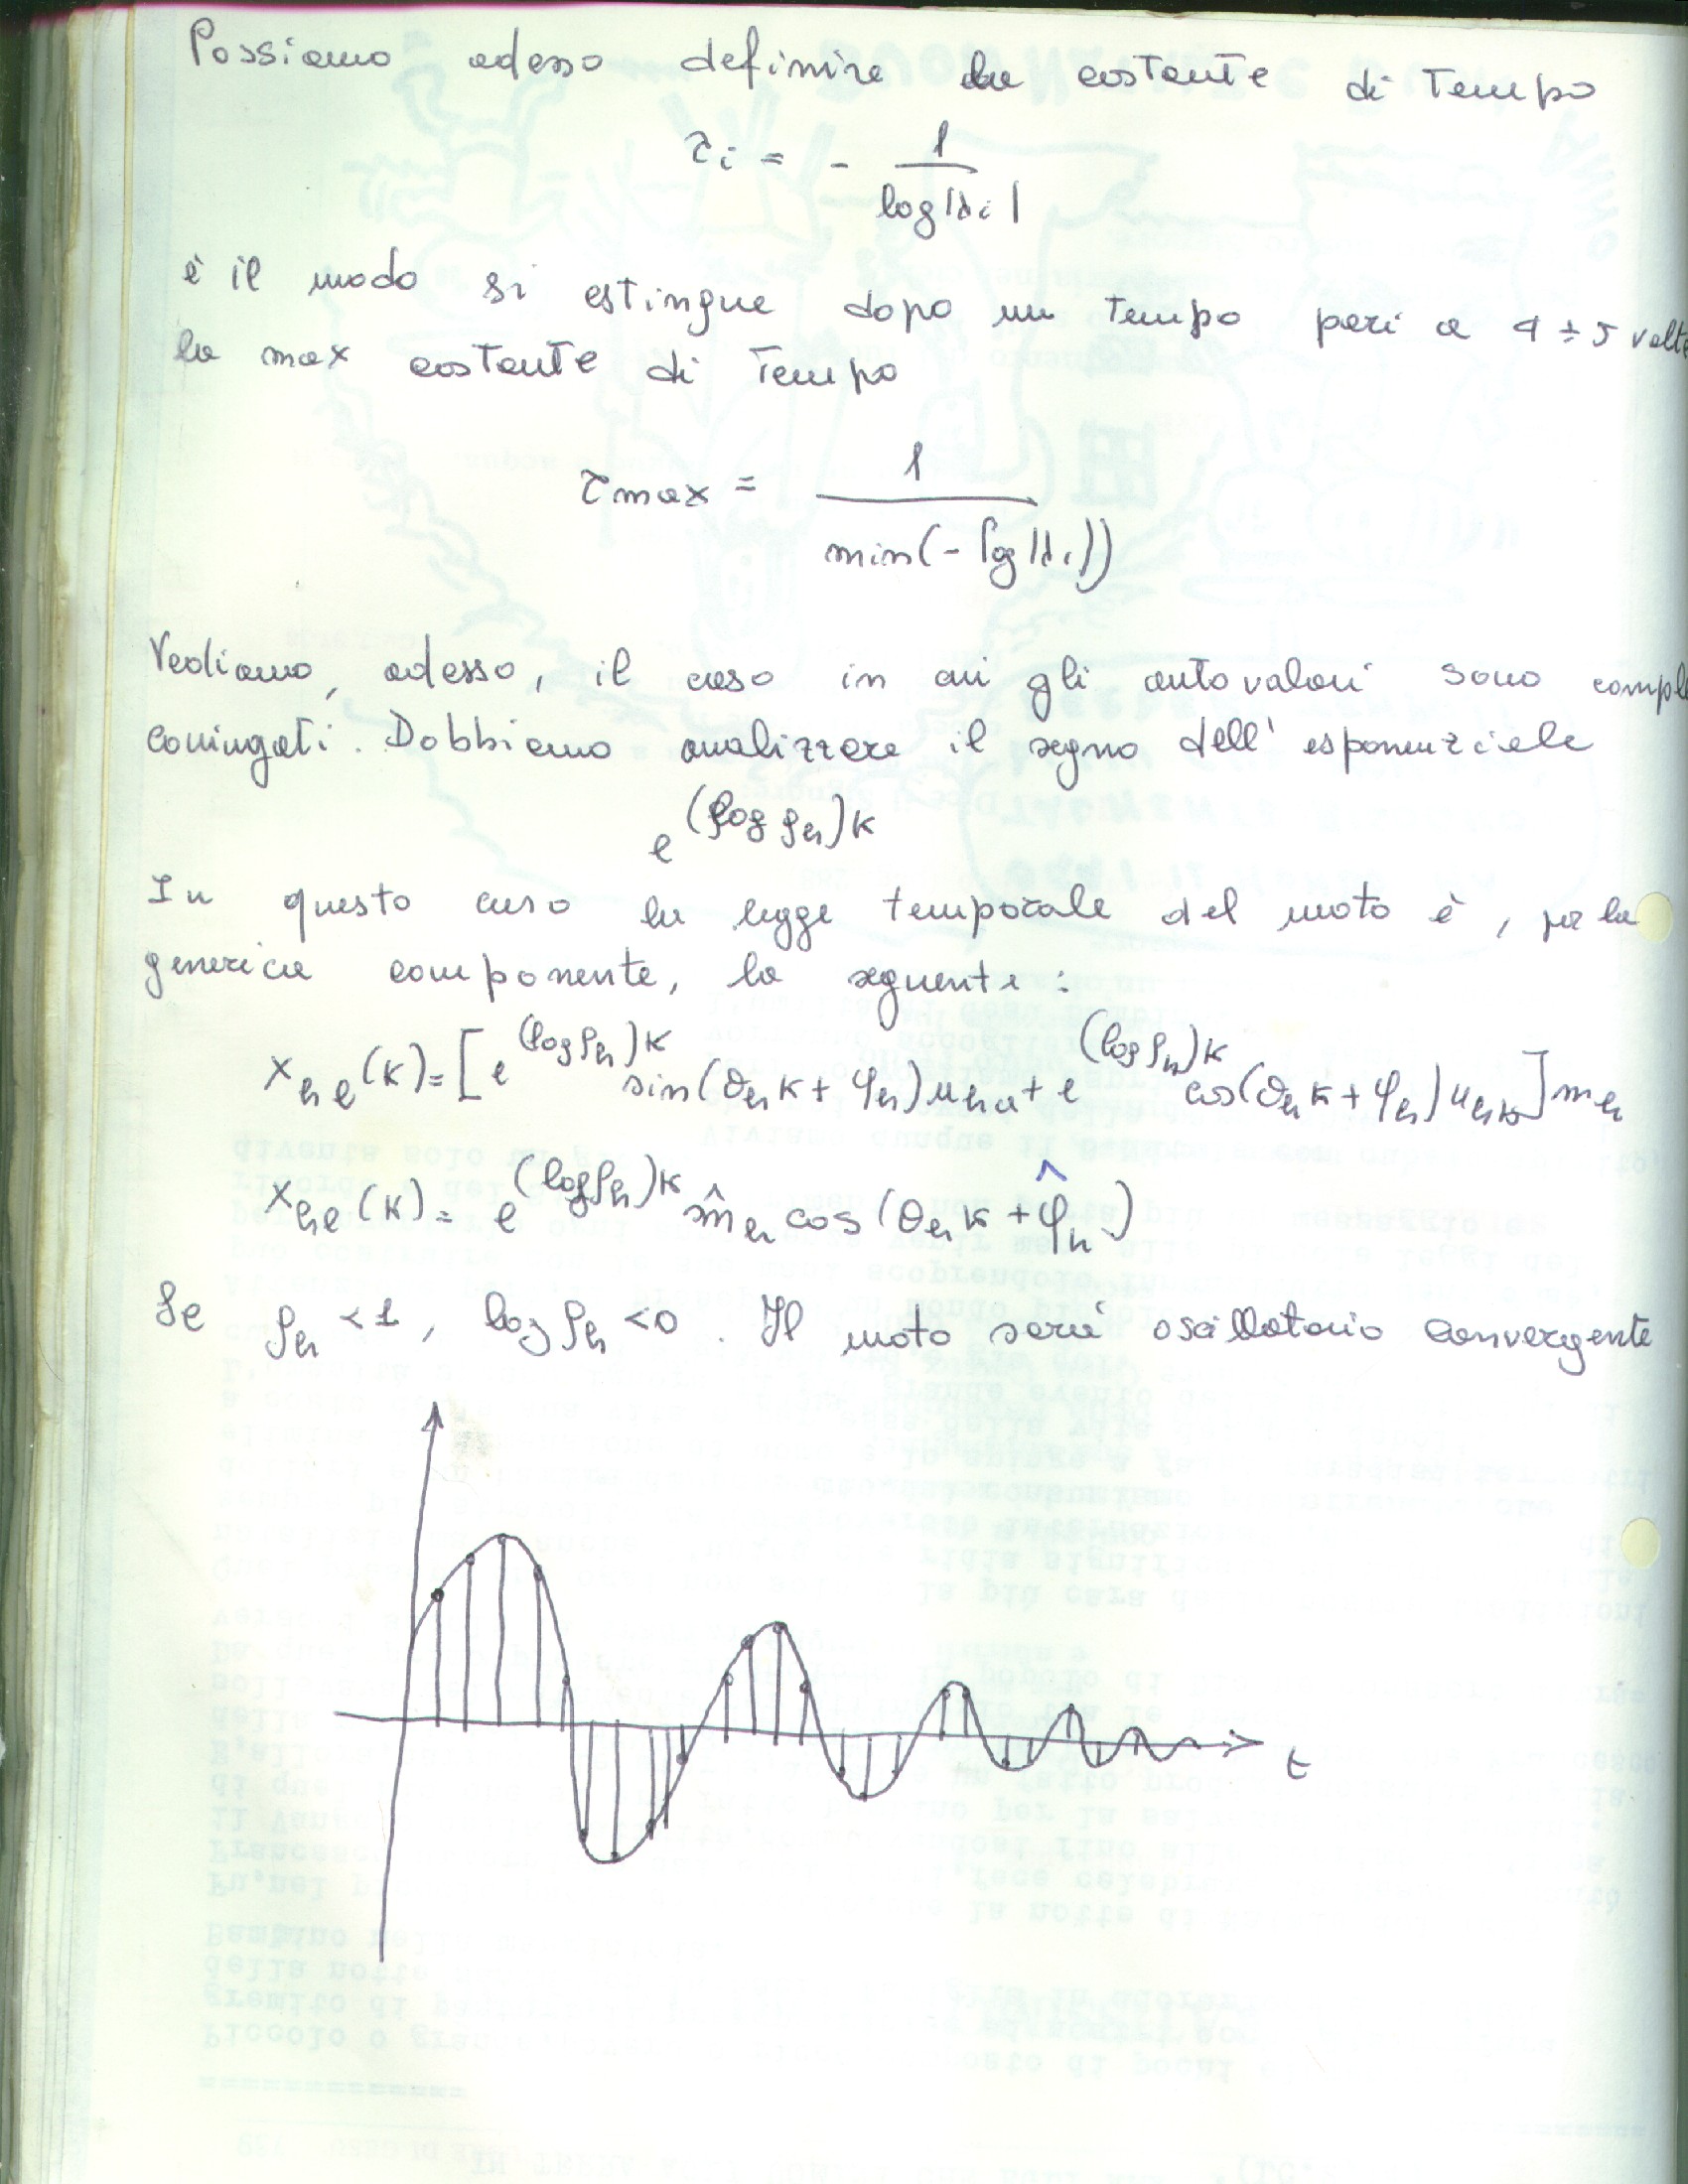 Possiamo adesso definire la costante di tempo
τi = - 1 / log|λi|
e il modo si estingue dopo un tempo pari a 4 ÷ 5 volte
la max costante di tempo
τmax = 1 / min(- log|λi|)
Vediamo, adesso, il caso in cui gli autovalori sono compl
coniugati. Dobbiamo analizzare il segno dell' esponenziale
e^(log ρh)k
In questo caso la legge temporale del moto è, per la
generica componente, la seguente:
xhl(k) = [e^(log ρh)k sin(θh k + φh) uha + e^(log ρh)k cos(θh k + φh) uhb] mh
xhl(k) = e^(log ρh)k m̂h cos(θh k + φ̂h)
Se ρh < 1, log ρh < 0. Il moto sarà oscillatorio convergente
t